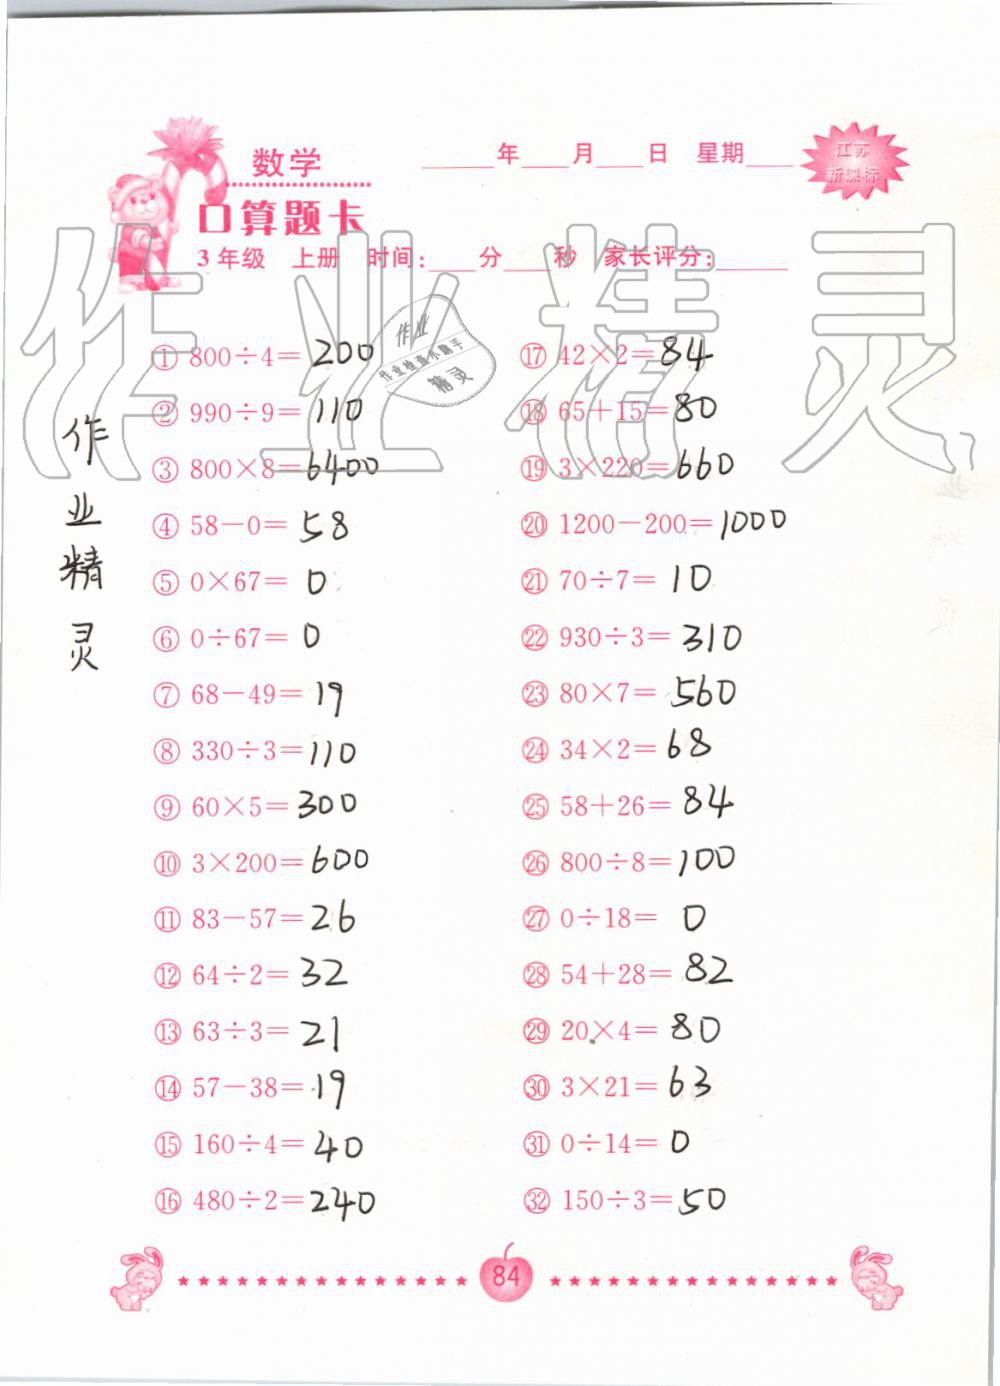 数学
____年____月____日 星期____
江苏
新课标
口算题卡
3年级 上册 时间:____分____秒 家长评分:____
作业精灵
作业
作业检查小助手
精灵
作业精灵
① 800÷4=200
② 990÷9=110
③ 800×8=6400
④ 58-0=58
⑤ 0×67=0
⑥ 0÷67=0
⑦ 68-49=19
⑧ 330÷3=110
⑨ 60×5=300
⑩ 3×200=600
⑪ 83-57=26
⑫ 64÷2=32
⑬ 63÷3=21
⑭ 57-38=19
⑮ 160÷4=40
⑯ 480÷2=240
⑰ 42×2=84
⑱ 65+15=80
⑲ 3×220=660
⑳ 1200-200=1000
㉑ 70÷7=10
㉒ 930÷3=310
㉓ 80×7=560
㉔ 34×2=68
㉕ 58+26=84
㉖ 800÷8=100
㉗ 0÷18=0
㉘ 54+28=82
㉙ 20×4=80
㉚ 3×21=63
㉛ 0÷14=0
㉜ 150÷3=50
84